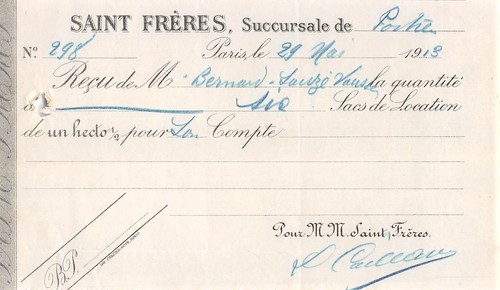 SAINT FRÈRES, Succursale de
No. 298 Paris, le 29 Mai 1913
Reçu de M Bernard la quantité
Six Sacs de Location
de un hecto 1/2 pour Son Compte
Pour M M. Saint Frères.
B.P.